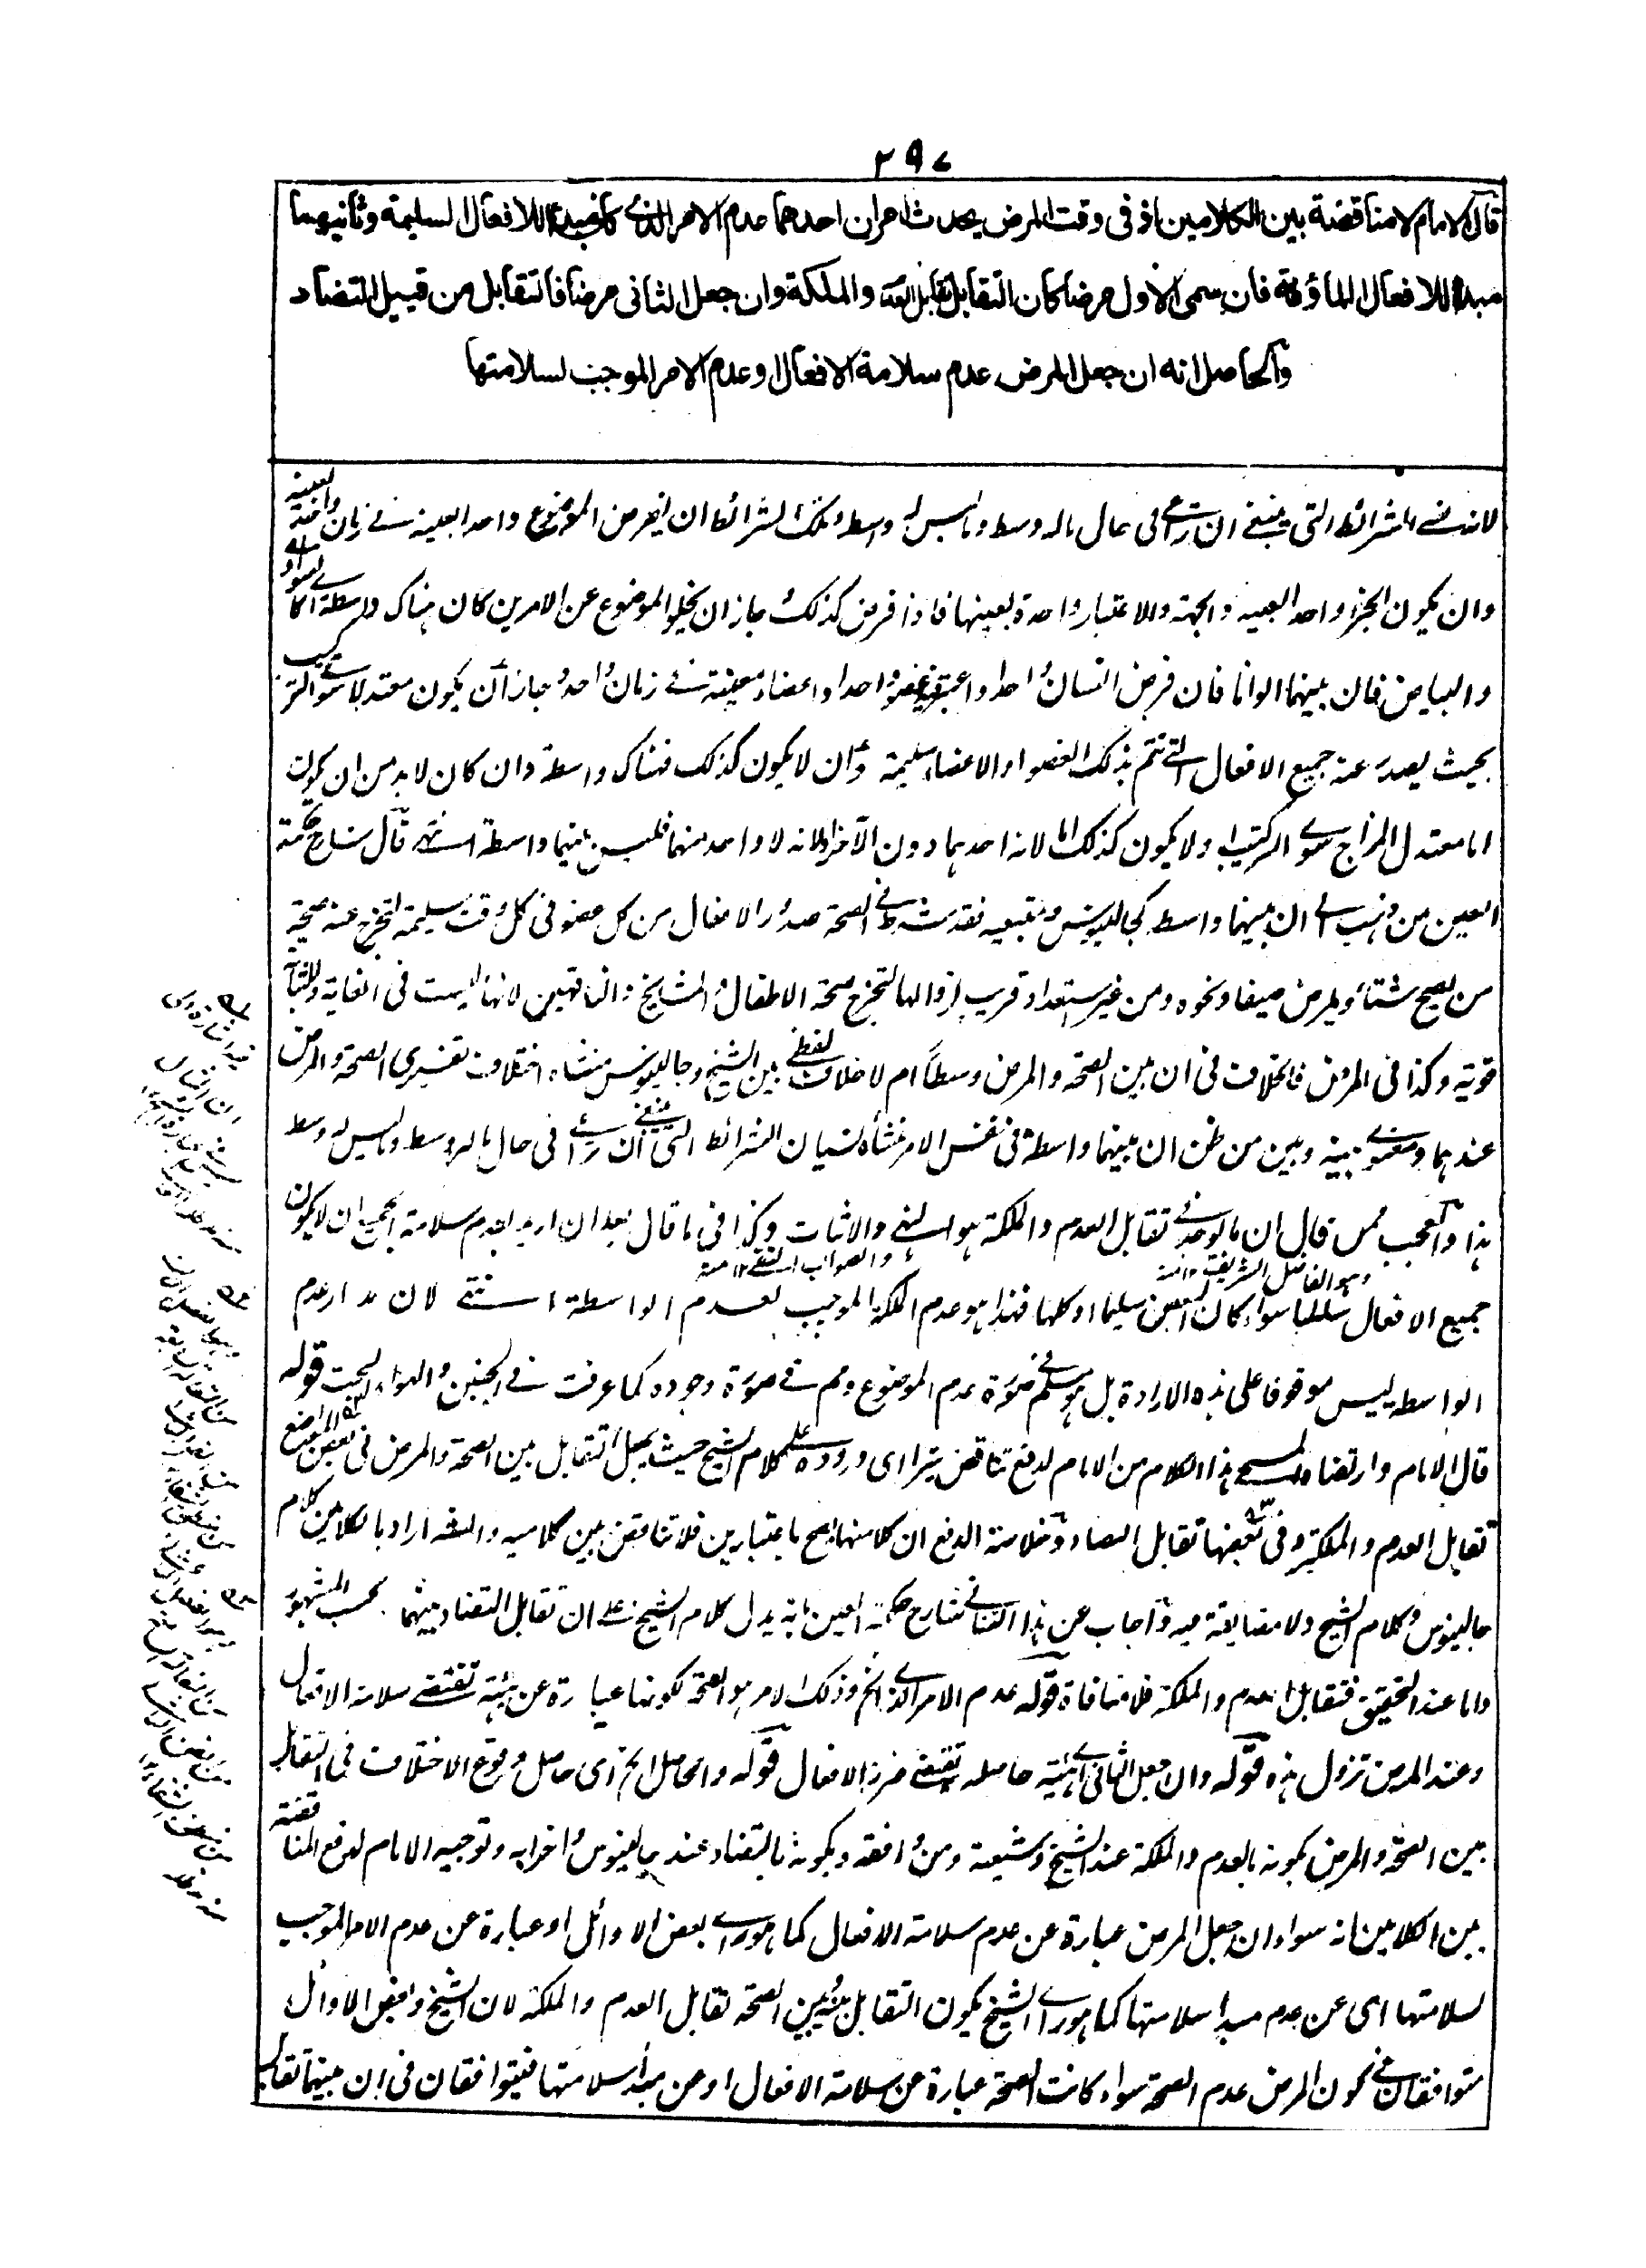 ٢٩٧
قال الامام لا مناقضة بين الكلامين اذ فى وقت المرض يحدث امران احدهما عدم الامر الذى كان مبدءا للافعال السليمة وثانيهما
مبدء للافعال الماؤفة فان سمى الاول مرضا كان التقابل تقابل العدم والملكة وان جعل الثانى مرضا فالتقابل من قبيل التضاد
والحاصل انه ان جعل المرض عدم سلامة الافعال او عدم الامر الموجب لسلامتها
لانه نسى الشرائط التى ينبغى ان تراعى فى حال ماله وسط وما ليس له وسط وتلك الشرائط ان يفرض الموضوع واحدا بعينه فى زمان واحد بعينه
وان يكون الجزء واحدا بعينه والجهة والاعتبار واحدة بعينها فاذا فرض كذلك جاز ان يخلو الموضوع عن الامرين كان هناك واسطة كالسواد
والبياض فان بينهما الوانا فان فرض انسان واحد واعتبر عضو واحد او اعضاء معينة فى زمان واحد وجاز ان يكون معتدلا سوى التركيب
بحيث يصدر عنه جميع الافعال التى تتم بذلك العضو او الاعضاء سليمة وان لا يكون كذلك فهناك واسطة وان كان لا بد من ان يكون
اما معتدل المزاج سوى التركيب او لا يكون كذلك اما لانه احدهما دون الآخر او لانه لا واحد منهما فليس بينهما واسطة انتهى قال شارح حكمة
العين من ذهب الى ان بينهما واسطة كجالينوس ومتبعيه فقد شرط فى الصحة صدور الافعال من كل عضو فى كل وقت سليمة لتخرج عنه صحة
من يصح شتاء ويمرض صيفا ونحوه ومن غير استعداد قريب لزوالها لتخرج صحة الاطفال والمشايخ والناقهين لانها ليست فى الغاية ولا ثابتا
قوية وكذا فى المرض فالخلاف فى ان بين الصحة والمرض وسطا ام لا خلاف لفظى بين الشيخ وجالينوس منشاءه اختلاف تفسيرى الصحة والمرض
عندهما ومعنوى بينه وبين من ظن ان بينهما واسطة فى نفس الامر منشأه نسيان الشرائط التى ينبغى ان تراعى فى حال ماله وسط وما ليس له وسط
هذا والعجب ممن قال ان ما يوجد فى تقابل العدم والملكة هو النفى والاثبات وكذا فى ما قال بعد ان اريد بعدم سلامة الجميع ان لا يكون
وهو الفاضل الشريف ١٢ منه
والصواب النفى ١٢ منه
جميع الافعال سليما سواء كان البعض سليما او كلها فهذا هو عدم الملكة الموجب لعدم الواسطة انتهى لان مدار عدم
الواسطة ليس موقوفا على هذه الارادة بل هو مسلم فى صورة عدم الموضوع وهم فى صورة وجوده كما عرفت فى الجنين والهواء البحت قوله
قال الامام وارتضاه المسيحى هذا الكلام من الامام لدفع تناقض يتراءى وروده على كلام الشيخ حيث يجعل التقابل بين الصحة والمرض فى بعض المواضع
تقابل العدم والملكة وفى بعضها تقابل التضاد وخلاصة الدفع ان كلا منهما صح باعتبارين فلا تناقض بين كلاميه والشه اراد بالكلامين كلام
جالينوس وكلام الشيخ ولا مضايقة فيه واجاب عن هذا التنافى شارح حكمة العين بانه يدل كلام الشيخ على ان تقابل التضاد بينهما بحسب المشهور
واما عند التحقيق فتقابل العدم والملكة فلا منافاة قوله عدم الامر الذى الخ وذلك الامر هو الصحة لكونها عبارة عن هيئة تقتضى سلامة الافعال
وعند المرض تزول هذه قوله وان جعل الثانى اى هيئة حاصلة تقتضى ضرر الافعال قوله والحاصل الخ اى حاصل وقوع الاختلاف فى التقابل
بين الصحة والمرض بكونه بالعدم والملكة عند الشيخ وشيعته ومن وافقه وبكونه بالتضاد عند جالينوس واضرابه وتوجيه الامام لدفع المناقضة
بين الكلامين انه سواء ان جعل المرض عبارة عن عدم سلامة الافعال كما هو راى بعض الاوائل او عبارة عن عدم الامر الموجب
لسلامتها اى عن عدم مبدء سلامتها كما هو راى الشيخ يكون التقابل بينه وبين الصحة تقابل العدم والملكة لان الشيخ وبعض الاوائل
متوافقان فى كون المرض عدم الصحة سواء كانت الصحة عبارة عن سلامة الافعال او عن مبدأ سلامتها فيتوافقان فى ان بينهما تقابل